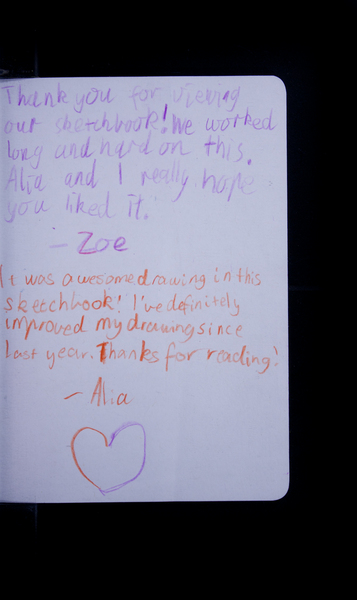 Thank you for viewing
our sketchbook! We worked
long and hard on this.
Alia and I really hope
you liked it.
- Zoe
It was awesome drawing in this
sketchbook! I've definitely
improved my drawing since
last year. Thanks for reading!
- Alia